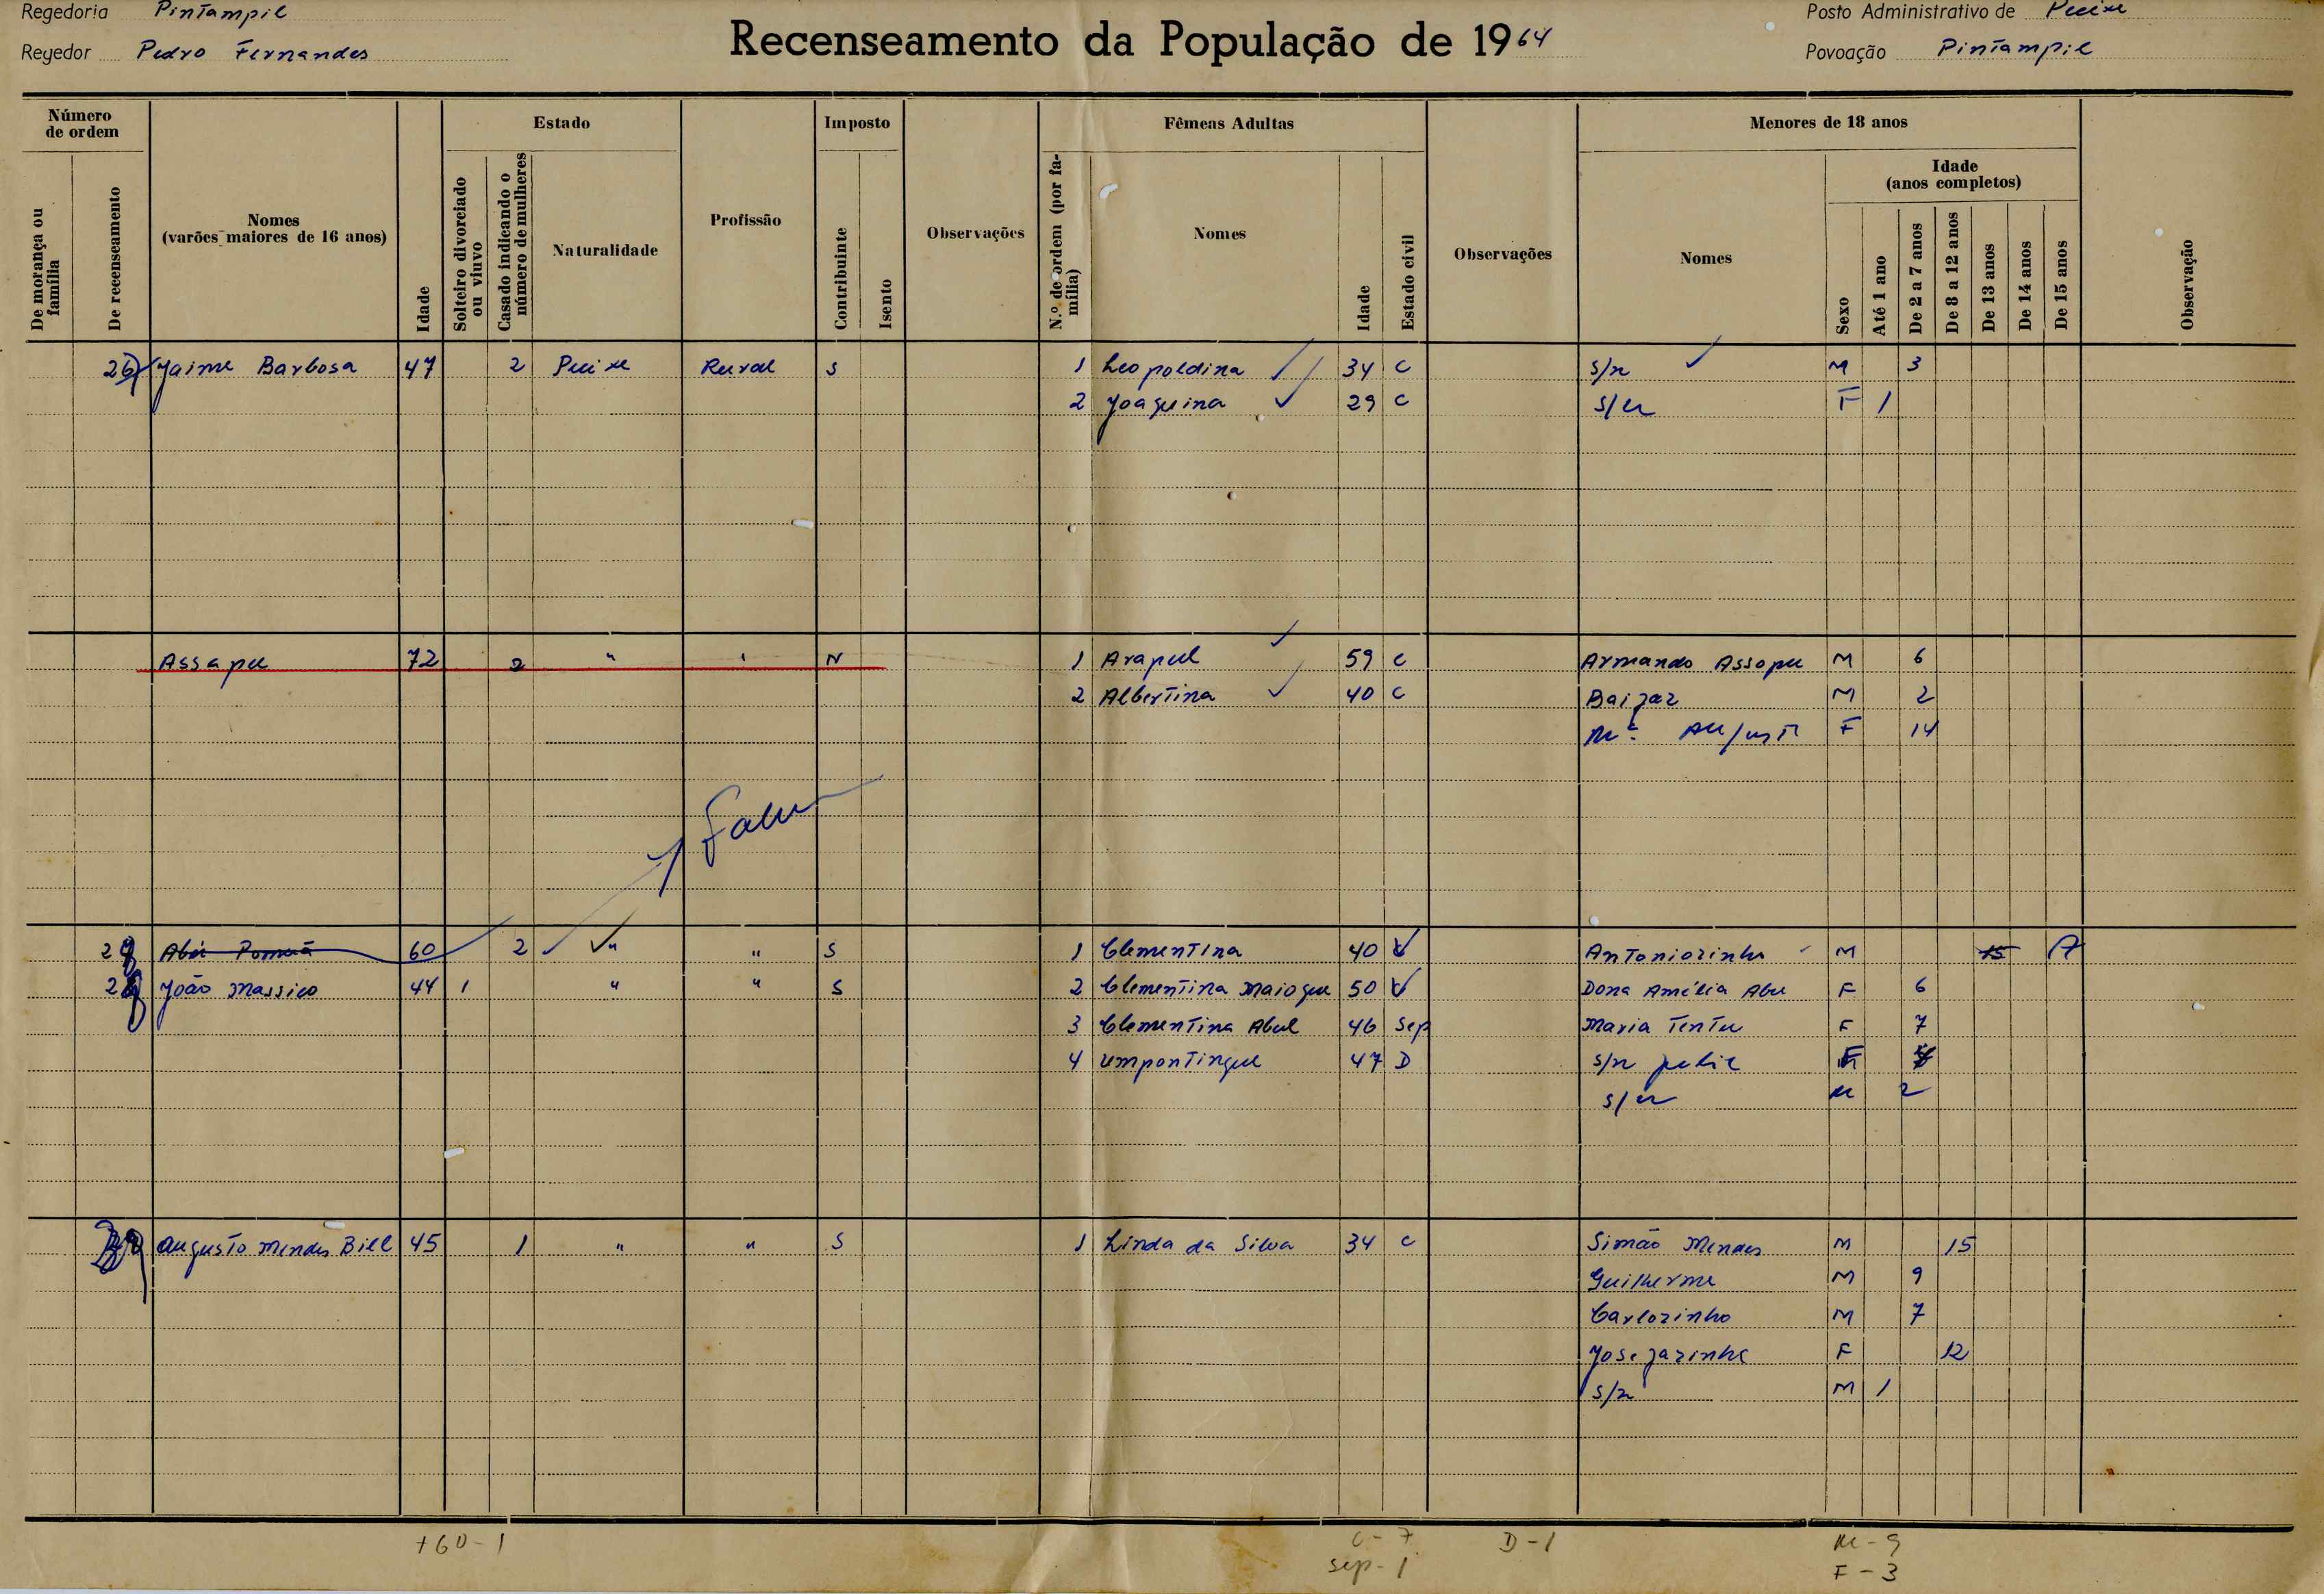 Regedoria Pintampil
Regedor Pedro Fernandes
Recenseamento da População de 1964
Posto Administrativo de Pecixe
Povoação Pintampil
Número de ordem
De morança ou família
De recenseamento
Nomes (varões maiores de 16 anos)
Idade
Estado
Solteiro divorciado ou viuvo
Casado indicando o número de mulheres
Naturalidade
Profissão
Imposto
Contribuinte
Isento
Observações
Fêmeas Adultas
N.º de ordem (por família)
Nomes
Idade
Estado civil
Observações
Menores de 18 anos
Nomes
Sexo
Idade (anos completos)
Até 1 ano
De 2 a 7 anos
De 8 a 12 anos
De 13 anos
De 14 anos
De 15 anos
Observação
Jaime Barbosa 47 2 Pecixe Rural S 1 Leopoldina 34 C s/n M 3
2 Joaquina 29 C s/n F 1
Assapu 72 2 " " N 1 Arapul 59 C Armando Assopu M 6
2 Albertina 40 C Baijaz M 2
Mª F 14
60 2 " " S 1 Clementina 40 Antoniozinho M 15
João Massico 44 1 " " S 2 Clementina Maioque 50 Dona Amélia Abu F 6
3 Clementina Abul 46 Sep Maria Tentu F 7
4 Umpontingue 47 D s/n F
s/n M 2
Augusto Mendes Bill 45 1 " " S 1 Linda da Silva 34 C Simão Mendes M 15
Guilherme M 9
Carlozinho M 7
Josejazinha F 12
s/n M 1
+60-1
C-7
D-1
M-9
Sep-1
F-3